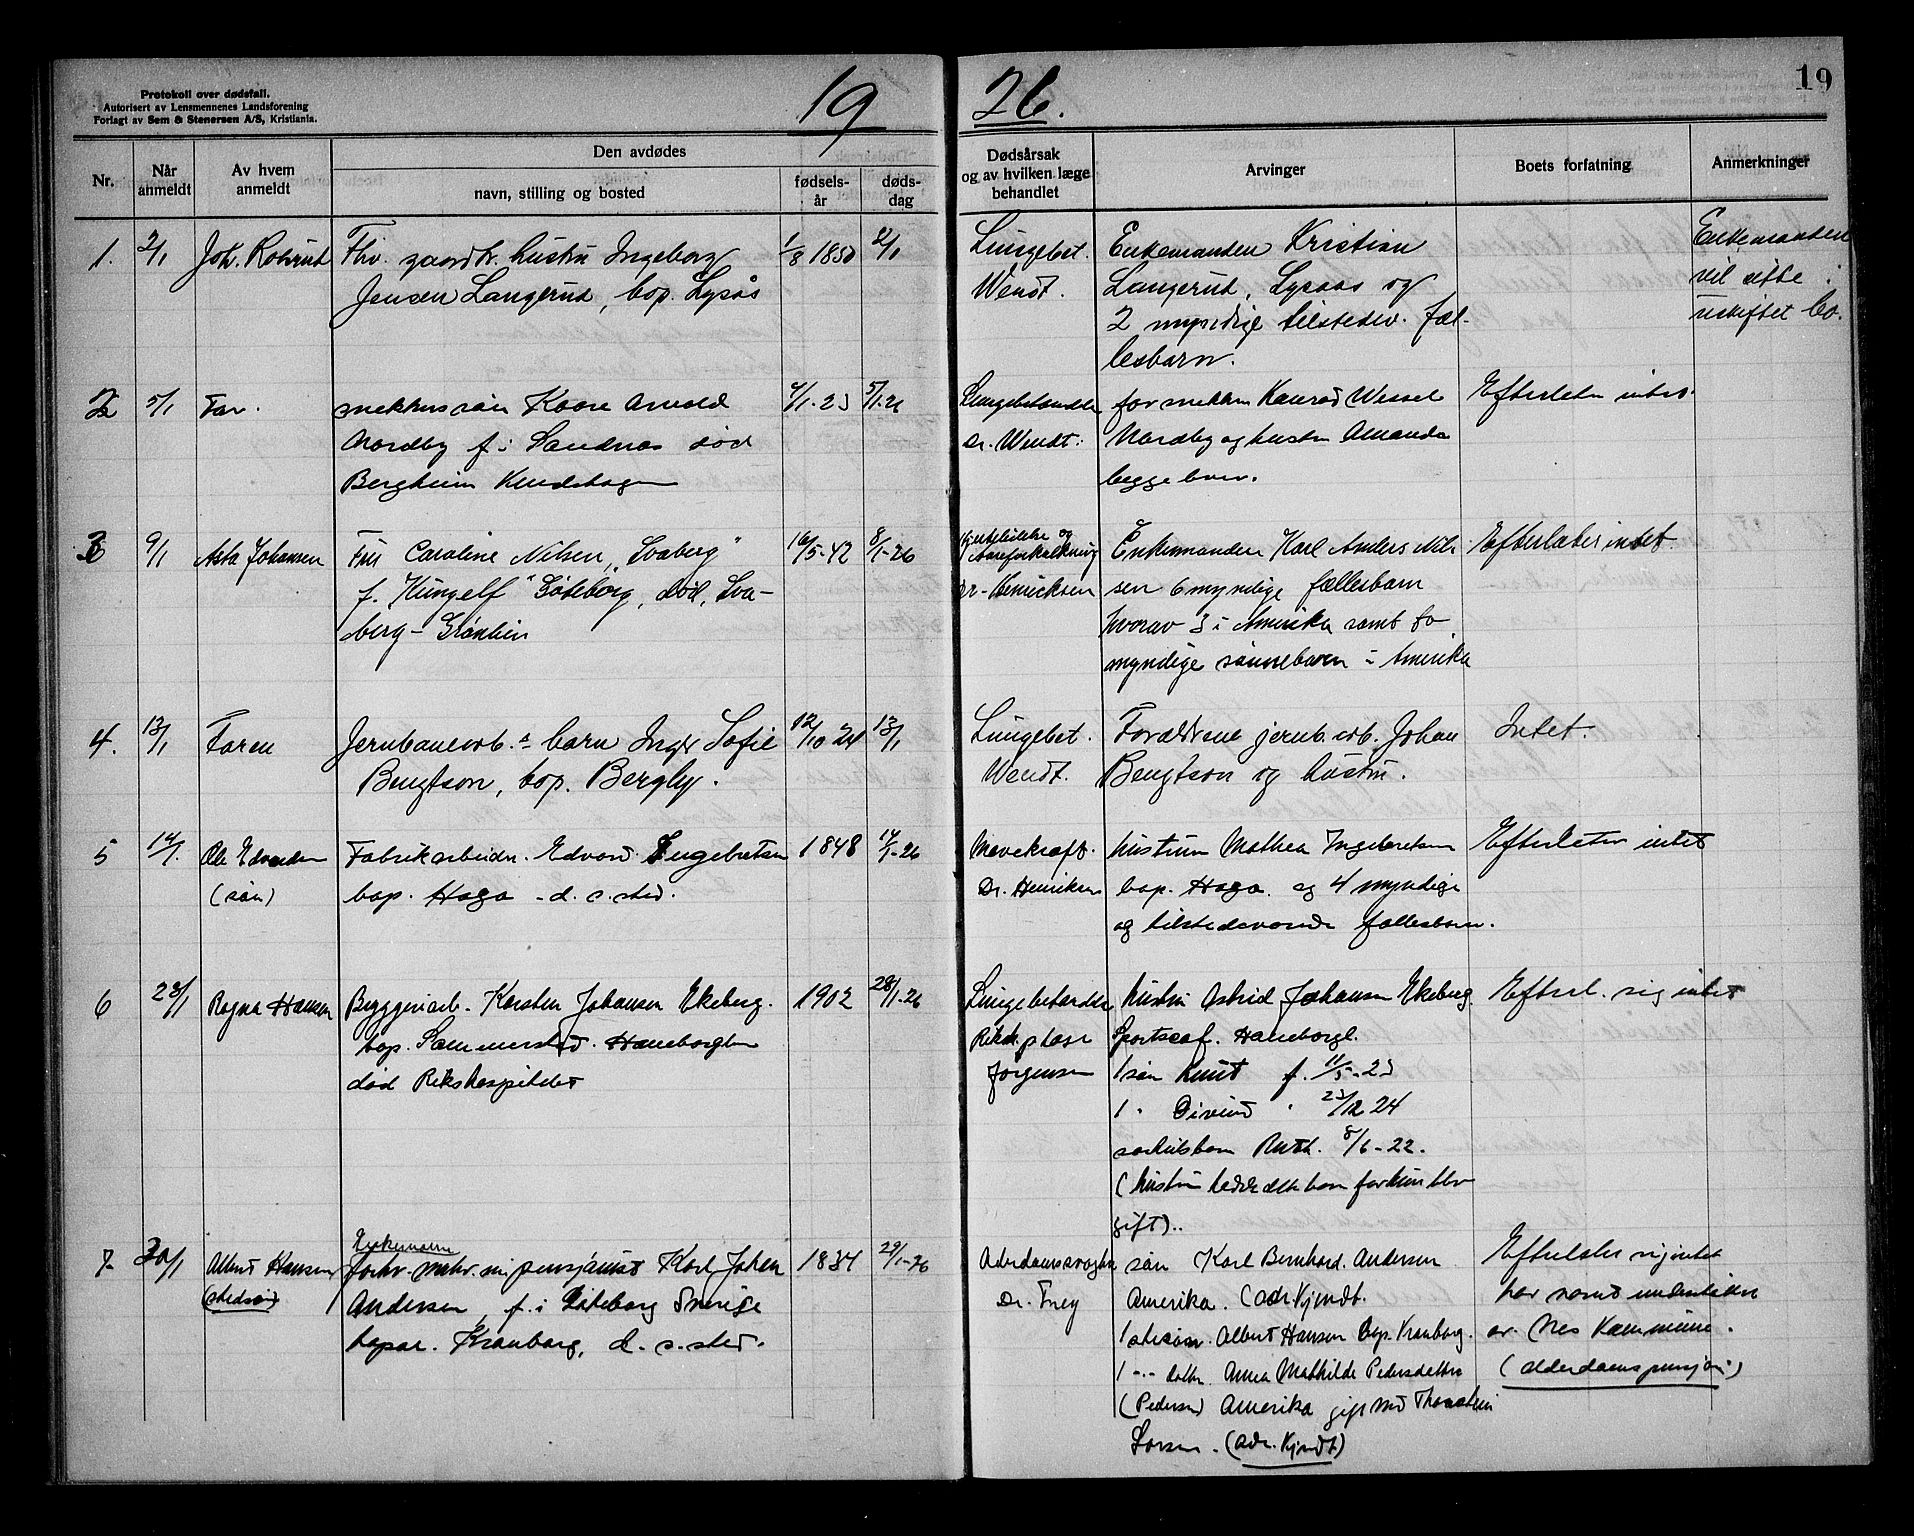 Protokoll over dødsfall.
Autorisert av Lensmennenes Landsforening
Forlagt av Sem & Stenersen A/S, Kristiania.
19 26.
19
Nr.
Når anmeldt
Av hvem anmeldt
Den avdødes
navn, stilling og bosted
fødsels-år
døds-dag
Dødsårsak og av hvilken læge behandlet
Arvinger
Boets forfatning
Anmerkninger
1. 2/1 Joh.
Fhv. gaardbr. hustru Ingeborg
Jensen Langerud, bop. Lysås
1/8 1850 2/1
Lungebet.
Wendt.
Enkemanden Kristian
Langerud, Lysaas og
2 myndige tilstedev. fæl-
lesbarn.
Enkemanden
vil sitte i
uskiftet bo.
2 5/1 Far.
søn Kaare Arvold
Nordby f. i Sandnes død
Bergheim
4/1-23 5/1-26
Dr. Wendt.
Konrad Wessel
Nordby og hustru Amanda
begge bor.
Efterlater intet.
3 9/1 Asta Johansen
Fru Caroline Nilsen, "Svaberg"
f. "Kungelf" Göteborg, død, Sva-
berg -
16/5-42 8/1-26
Hjertelidelse og
Aareforkalkning
Dr. Henricksen
Enkemanden Karl Anders Nil-
sen 6 myndige fællesbarn
hvorav 3 i Amerika samt to
myndige sønnebarn i Amerika
Efterlater intet.
4. 13/1 Faren
Jernbanearb.s barn Inger Sofie
Bengtson, bop. Bergly.
12/10 24 13/1
Lungebet.
Wendt.
Forældrene jernb. arb. Johan
Bengtson og hustru.
Intet.
5 14/1. Ole Edvardsen
(søn)
Fabrikarbeider Edvard Ingebretsen
bop. Haga - d. s. sted.
1848 14/1-26
Mavekræft.
Dr. Henriksen
hustruen Mathea Ingebretsen
bop. Haga. og 4 myndige
og tilstedeværende fællesbarn.
Efterlater intet
6 28/1 Ragna Hansen
Bryggeriarb. Karsten Johansen Ekeberg.
bop. Sammerstad. Haneborgen
død Rikshospitalet
1902 28/1-26
Jørgensen
hustru Astrid Johansen Ekeberg.
Haneborgl.
1 søn Knut f. 11/5-23
1 " Eivind " 23/12 24
særkulsbarn Ruth. 8/6-22.
gift)..
Efterl. sig intet
7- 30/1 Albert Hansen
(stedsøn)
Enkemann
pensjonist Karl Johan
Andersen, f. i Göteborg Sverige
bopæl. Kranborg, d. s. sted.
1834 29/1-26
Alderdomssvaghet
Dr. Frey
søn Karl Bernhard Andersen
Amerika. (adr. kjendt.
1 stedsøn. Albert Hansen bop. Kranborg.
1 -"- datter Anna Mathilde Pedersdatter
(Pedersen) Amerika gift med Thorstein
Larsen. (adr. kjendt)
Efterlater sig intet
har været understøttet
av Nes Kommune.
(alderdomspensjon)